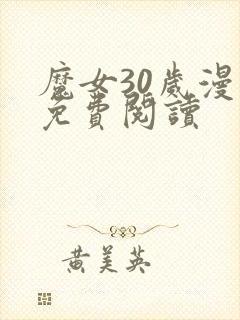 魔女30歲漫
免費閱讀
黄美英